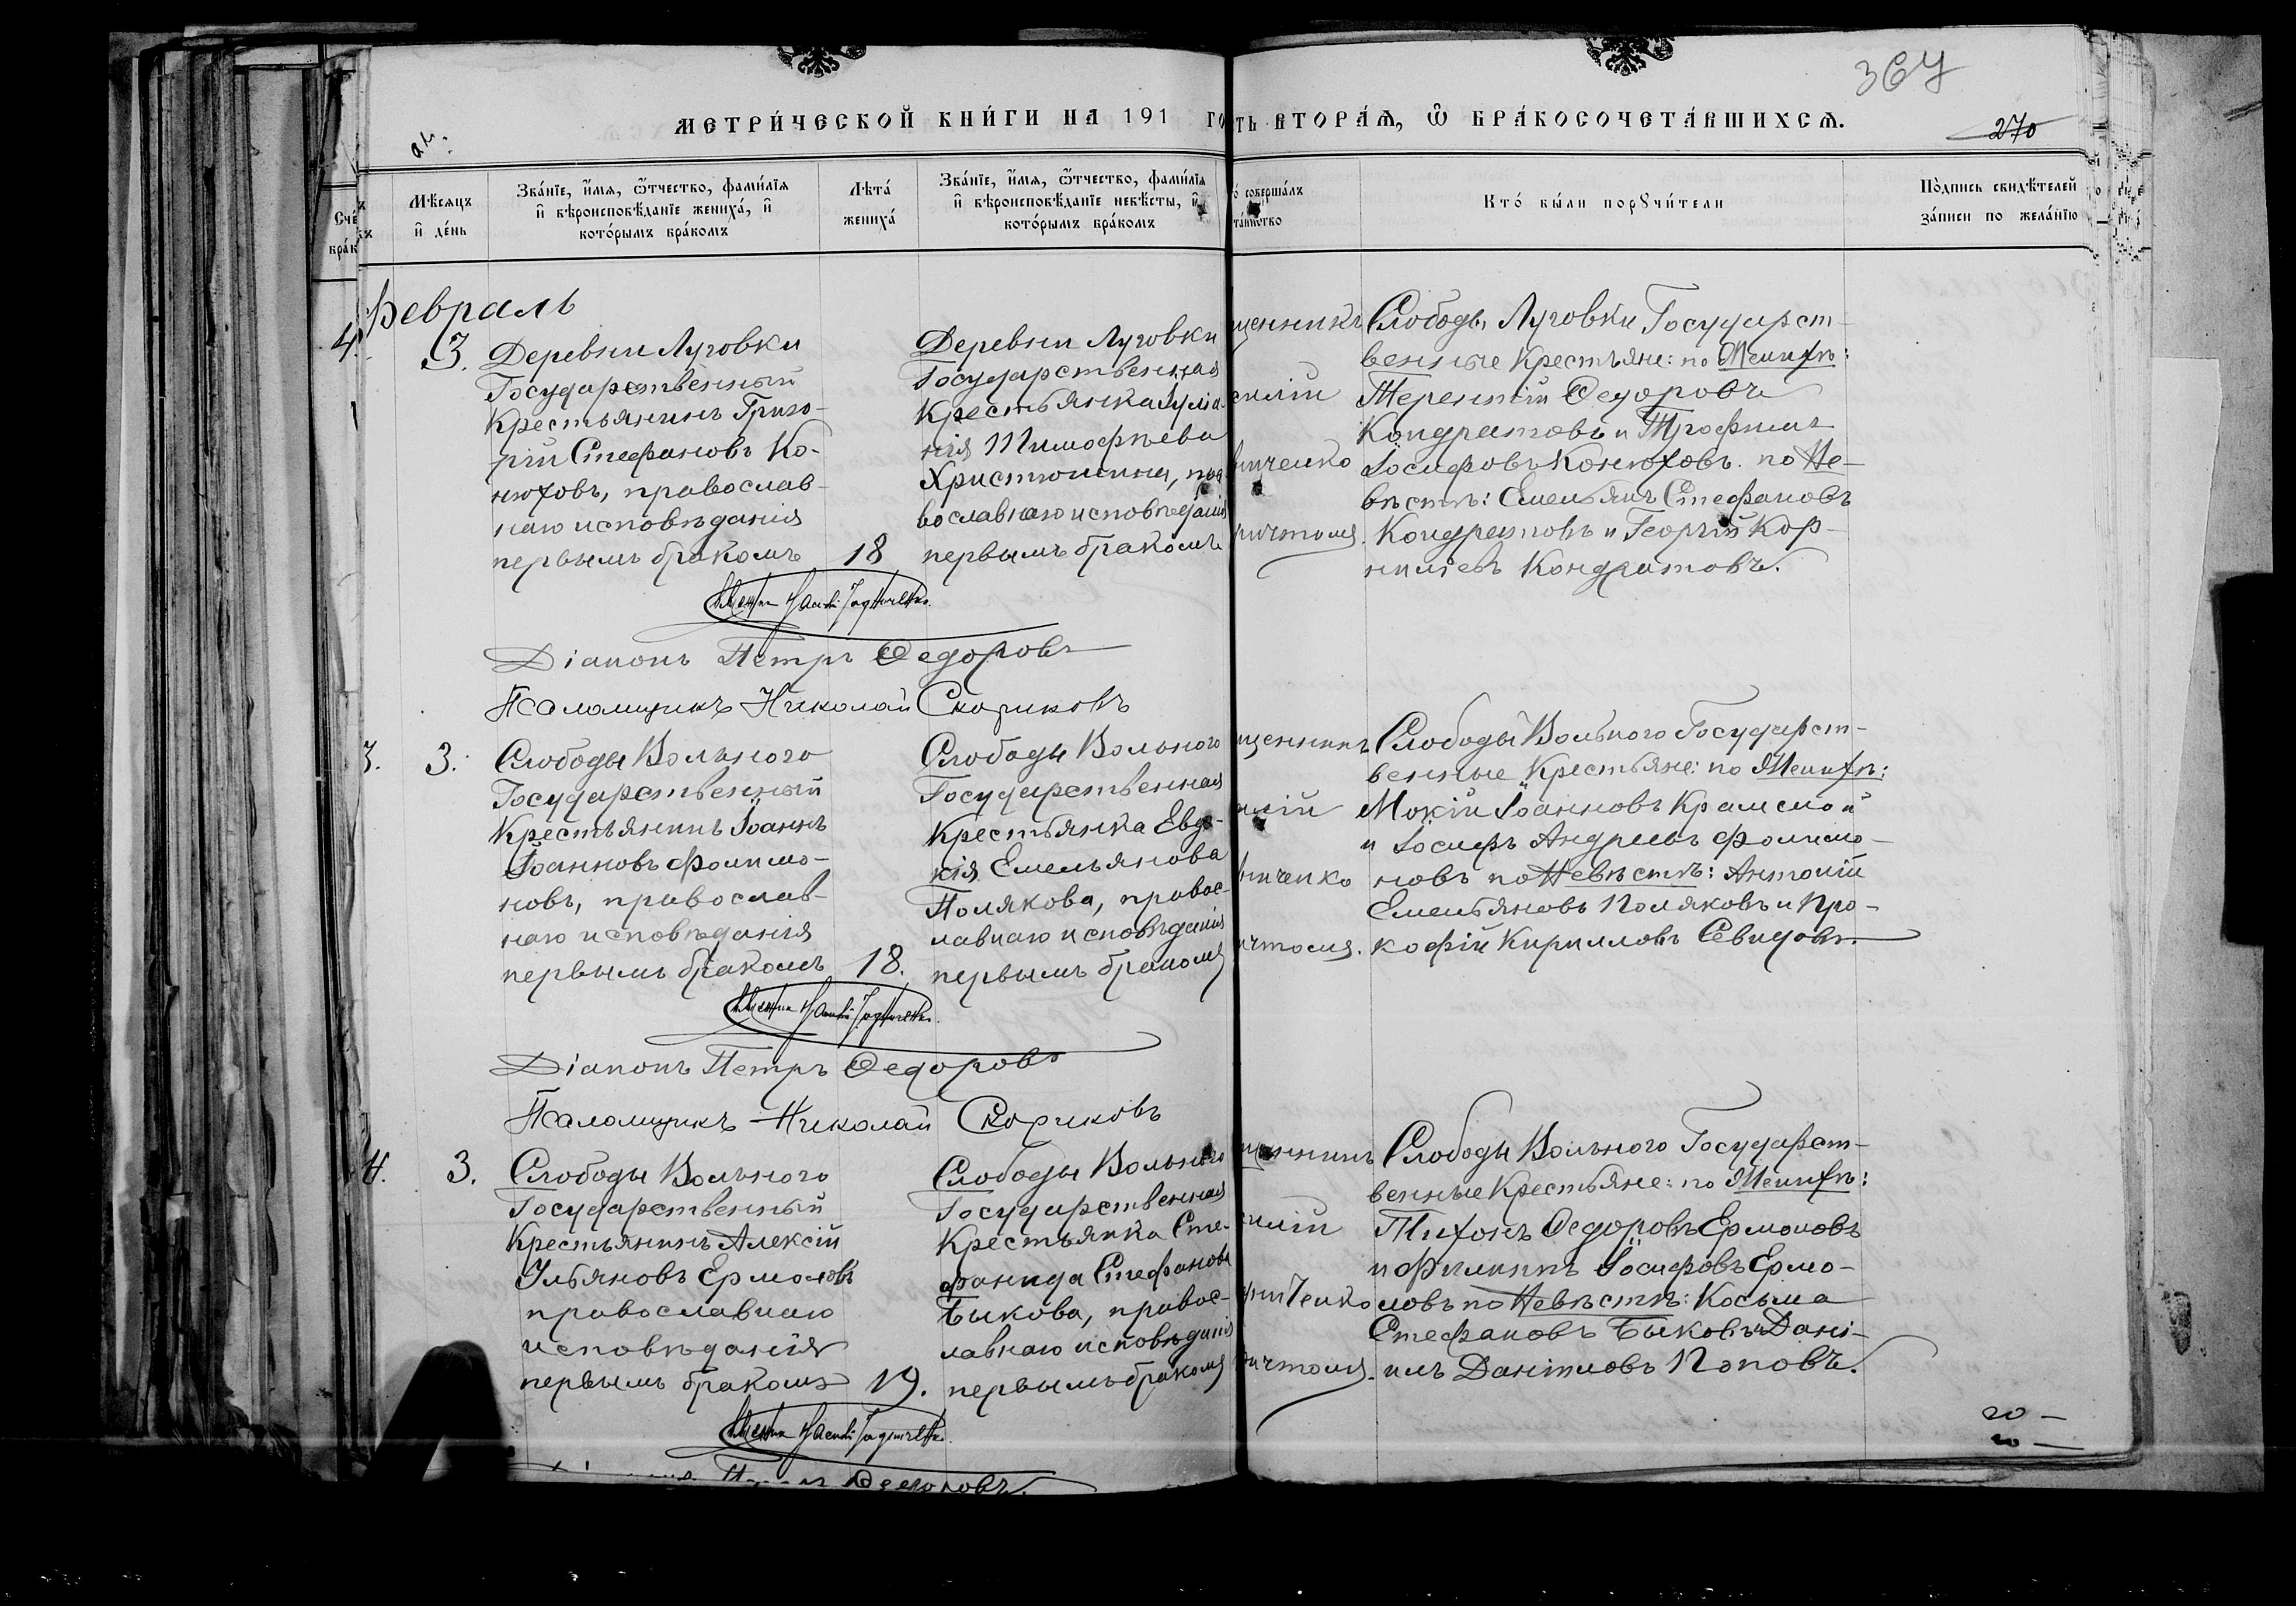 367
МЕТРИ́ЧЕСКОЙ КНИ́ГИ НА 191 ГО
ТЬ ВТОРА́Я, Ѡ БРА́КОСОЧЕТА́ВШИХСЯ.
270
Сче́
брак
Мѣ́сяцъ
и де́нь
Зва́нїе, и́мя, ѻ́тчество, фами́лїя
и вѣроисповѣ́данїе жениха́, и
кото́рымъ бра́комъ
Лѣта́
жениха́
Зва́нїе, и́мя, ѻ́тчество, фами́лїя
и вѣроисповѣ́данїе невѣ́сты, и
кото́рымъ бра́комъ
о́ соверша́лъ
та́инство
Кто́ бы́ли порꙋчи́тели
По́дпись свидѣ́телей
за́писи по жела́нїю
Февраль
4.
3.
Деревни Луговки
Государственный
Крестьянинъ Григо-
рій Стефановъ Ко-
нюховъ, православ-
наго исповѣданія
первымъ бракомъ
18
Деревни Луговки
Государственная
Крестьянка Іуліа-
нія Тимофѣева
Христюшина, пра
вославнаго исповѣданія
первымъ бракомъ
щенникъ
силій
ниченко
ричтомъ.
Слободы Луговки Государст-
венные Крестьяне: по Женихѣ:
Терентій Федоровъ
Кондратовъ и Трофимъ
Іосифовъ Конюховъ. по Не-
вѣстѣ: Емельянъ Стефановъ
Кондратовъ и Георгій Кор-
ниліевъ Кондратовъ.
Діаконъ Петръ Федоровъ
Псаломщикъ Николай Скориковъ
3.
3.
Слободы Вольного
Государственный
Крестьянинъ Іоаннъ
Іоанновъ Филимо-
новъ, православ-
наго исповѣданія
первымъ бракомъ
18.
Слободы Вольного
Государственная
Крестьянка Евдо-
кія Емельянова
Полякова, правос-
лавнаго исповѣданія
первымъ бракомъ
щенникъ
илій
ниченко
ичтомъ.
Слободы Вольного Государст-
венные Крестьяне: по Женихѣ:
Мокій Іоанновъ
и Іосифъ Андреевъ Филимо-
новъ по Невѣстѣ: Антоній
Емельяновъ Поляковъ и Про-
кофій Кирилловъ Севидовъ.
Діаконъ Петръ Федоровъ
Псаломщикъ Николай Скориковъ
4.
3.
Слободы Вольного
Государственный
Крестьянинъ Алексій
Ульяновъ Ермоловъ
православнаго
исповѣданія
первымъ бракомъ
19.
Слободы Вольного
Государственная
Крестьянка Сте-
фанида Стефанова
Быкова, правос-
лавнаго исповѣданія
первымъ бракомъ
щенникъ
силій
ниченко
ричтомъ.
Слободы Вольного Государст-
венные Крестьяне: по Женихѣ:
Тихонъ Федоровъ Ермоловъ
и Филиппъ Іосифовъ Ермо-
ловъ по Невѣстѣ: Косьма
Стефановъ Быковъ и Дані-
илъ Даніиловъ Поповъ.
Петръ Федоровъ.
20 —